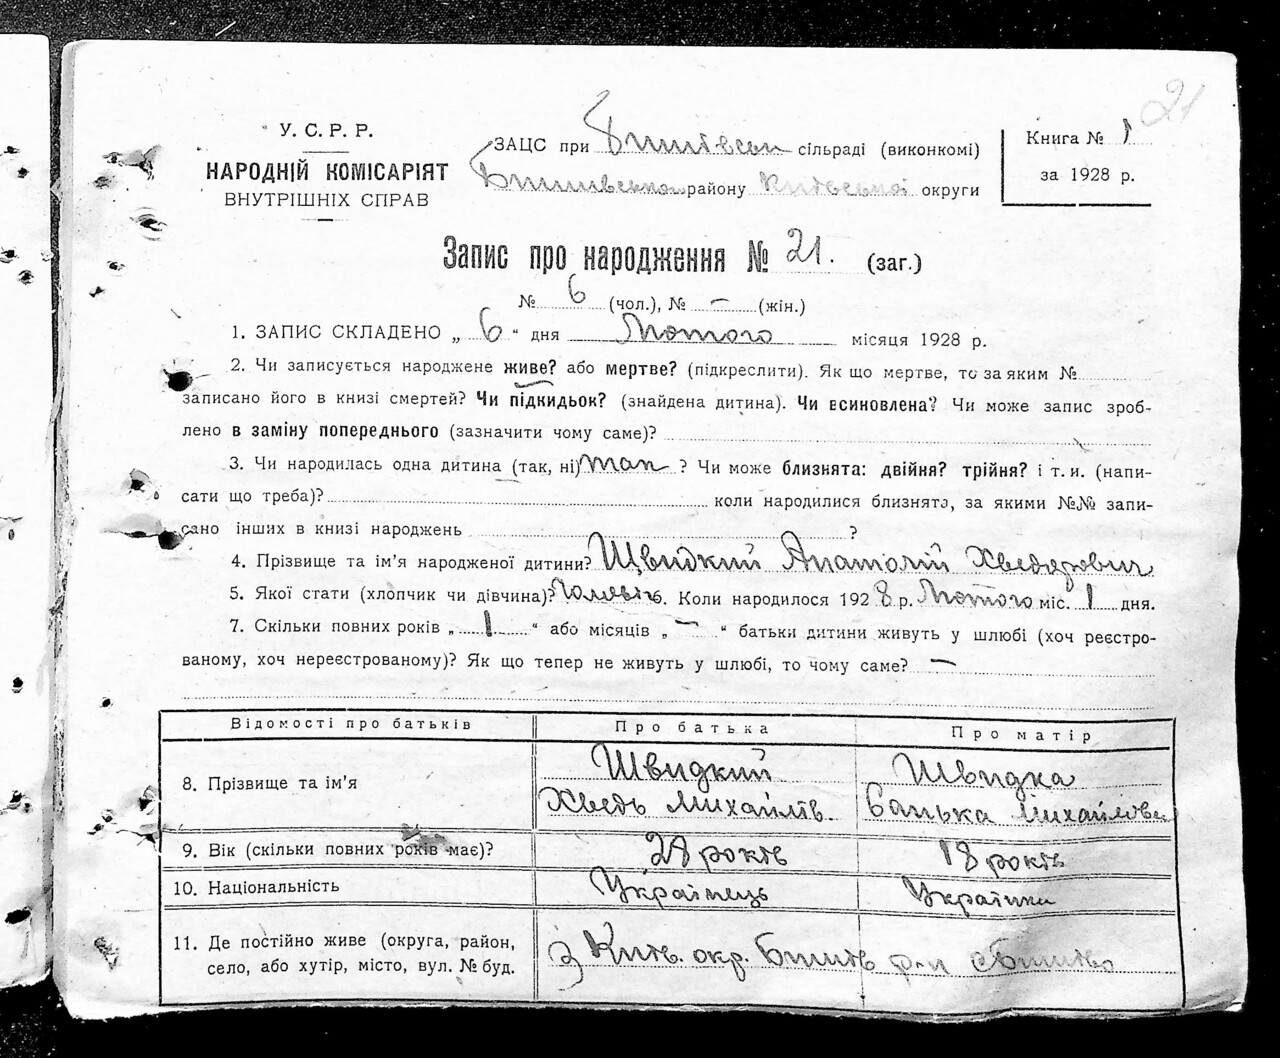 21
У. С. Р. Р.
НАРОДНІЙ КОМІСАРІЯТ
ВНУТРІШНІХ СПРАВ
ЗАЦС при сільраді (виконкомі)
району Київської округи
Книга № 1
за 1928 р.
Запис про народження № 21. (заг.)
№ 6 (чол.), № – (жін.)
1. ЗАПИС СКЛАДЕНО „ 6 “ дня Лютого місяця 1928 р.
2. Чи записується народжене живе? або мертве? (підкреслити). Як що мертве, то за яким №
записано його в книзі смертей? Чи підкидьок? (знайдена дитина). Чи всиновлена? Чи може запис зроб-
лено в заміну попереднього (зазначити чому саме)?
3. Чи народилась одна дитина (так, ні) так ? Чи може близнята: двійня? трійня? і т. и. (напи-
сати що треба)? коли народилися близнята, за якими №№ запи-
сано інших в книзі народжень ?
4. Прізвище та ім’я народженої дитини? Швидкий Анатолій Хведорович
5. Якої стати (хлопчик чи дівчина)? Чоловіч. 6. Коли народилося 1928 р. Лютого міс. 1 дня.
7. Скільки повних років „ 1 “ або місяців „ – “ батьки дитини живуть у шлюбі (хоч реєстро-
ваному, хоч нереєстрованому)? Як що тепер не живуть у шлюбі, то чому саме? –
Відомості про батьків Про батька Про матір
8. Прізвище та ім’я
Швидкий Швидка
Хведь Михайлів. Ганька Михайлова
9. Вік (скільки повних років має)? років 18 років
10. Національність Українець Українка
11. Де постійно живе (округа, район,
село, або хутір, місто, вул. № буд.
Київ. окр. р-н